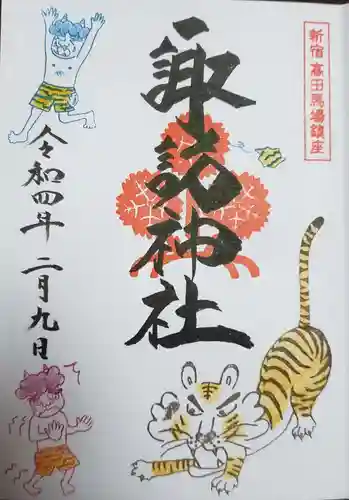 新宿高田馬場鎮座
諏訪神社
令和四年二月九日